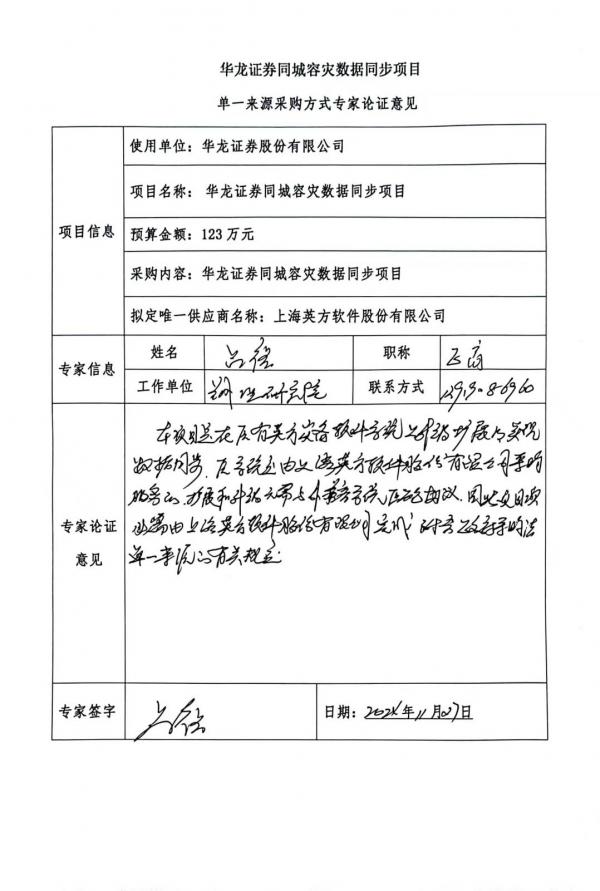 华龙证券同城容灾数据同步项目
单一来源采购方式专家论证意见
项目信息
使用单位：华龙证券股份有限公司
项目名称： 华龙证券同城容灾数据同步项目
预算金额：123 万元
采购内容：华龙证券同城容灾数据同步项目
拟定唯一供应商名称：上海英方软件股份有限公司
专家信息
姓名
职称
正高
工作单位
联系方式
专家论证
意见
本项目是在原有英方灾备软件系统上升级扩展与实现
数据同步，原系统是由上海英方软件股份有限公司采购
服务的，扩展和升级
由上海英方软件股份有限公司完成 符合政府采购法
单一来源的有关规定
专家签字
日期：2024年11月27日